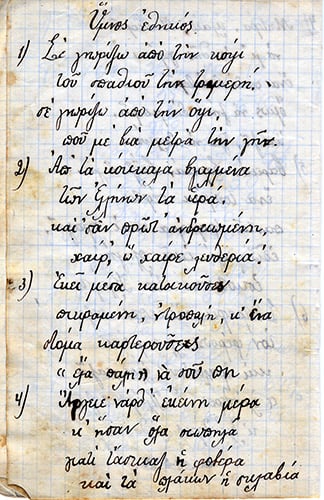 Ὕμνος ἐθνικός
1) Σὲ γνωρίζω ἀπὸ τὴν κόψι
τοῦ σπαθιοῦ τὴν τρομερή,
σὲ γνωρίζω ἀπὸ τὴν ὄψι,
ποῦ μὲ βία μετρᾶ τὴν γῆν.
2) Ἀπ τὰ κόκκαλα βγαλμένα
τῶν Ἑλλήνων τὰ ἱερά.
καὶ σὰν πρῶτ ἀνδρειωμένη,
χαῖρε, ὤ χαῖρε λευθεριά!
3) Ἐκεῖ μέσα κατοικοῦσες
πικραμένη, ντροπαλή, κ' ἕνα
στόμα καρτεροῦσες
« ἔλα πάλι » νὰ σοῦ πῆ
4) Ἄργιε νάρθ' ἐκείνη μέρα
κ' ἦσαν ὅλα σιωπηλά
γιατὶ τἄσκιαζ ἡ φοβέρα
καὶ τὰ πλάκων ἡ σκλαβιά